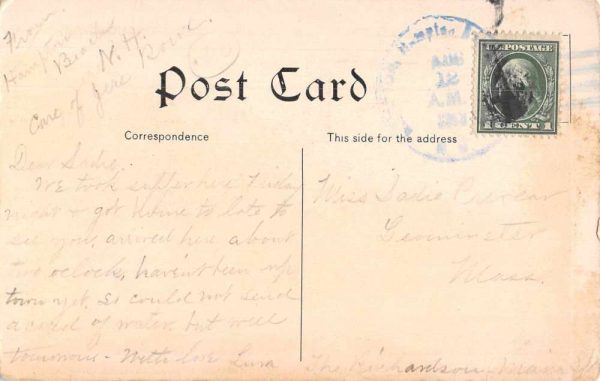 From
Hampton
Beach N.H.
Care of Jere Rowe.
Hampton
AUG
12
A.M.
U.S. POSTAGE
1 CENT 1
Post Card
Correspondence
This side for the address
Dear Sadie,
We took supper here Friday
night & got home to late to
see you, arrived here about
two oclock, haven't been up
town yet. So could not send
a card of water, but will
tomorrow - With love Lura
Miss Sadie
Leominster
Mass.
The Richardson